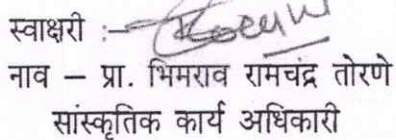 स्वाक्षरी :–
नाव – प्रा. भिमराव रामचंद्र तोरणे
सांस्कृतिक कार्य अधिकारी